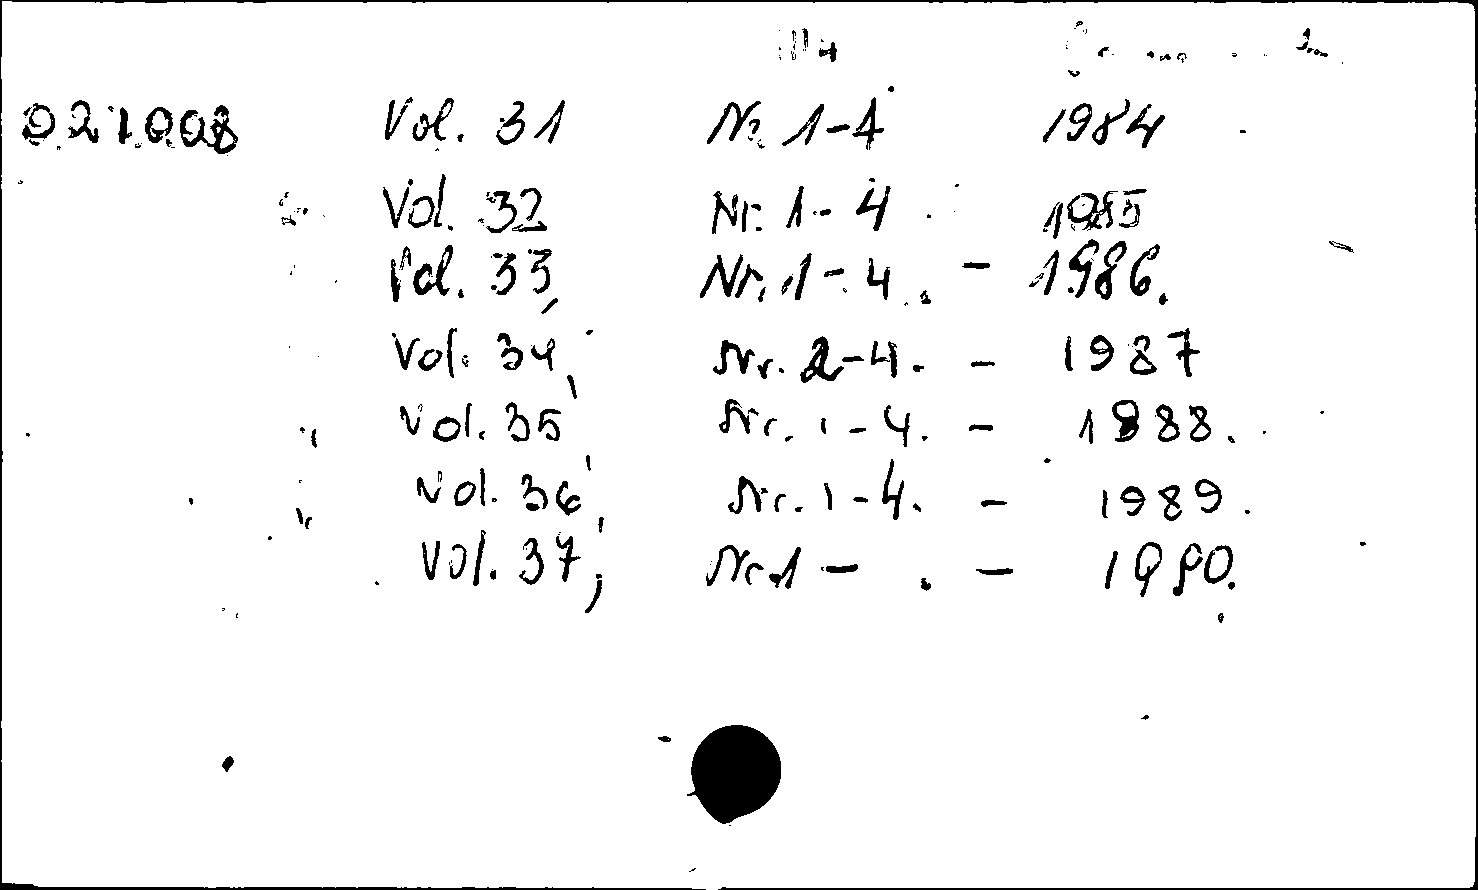 021008 Vol. 31 Nr. 1-4 1984
Vol. 32 Nr. 1-4 1985
Vol. 33, Nr. 1-4. - 1986.
Vol. 34, Nr. 2-4. - 1987
" Vol. 35, Nr. 1-4. - 1988.
" Vol. 36, Nr. 1-4. - 1989.
Vol. 37, Nr 1- . - 1990.